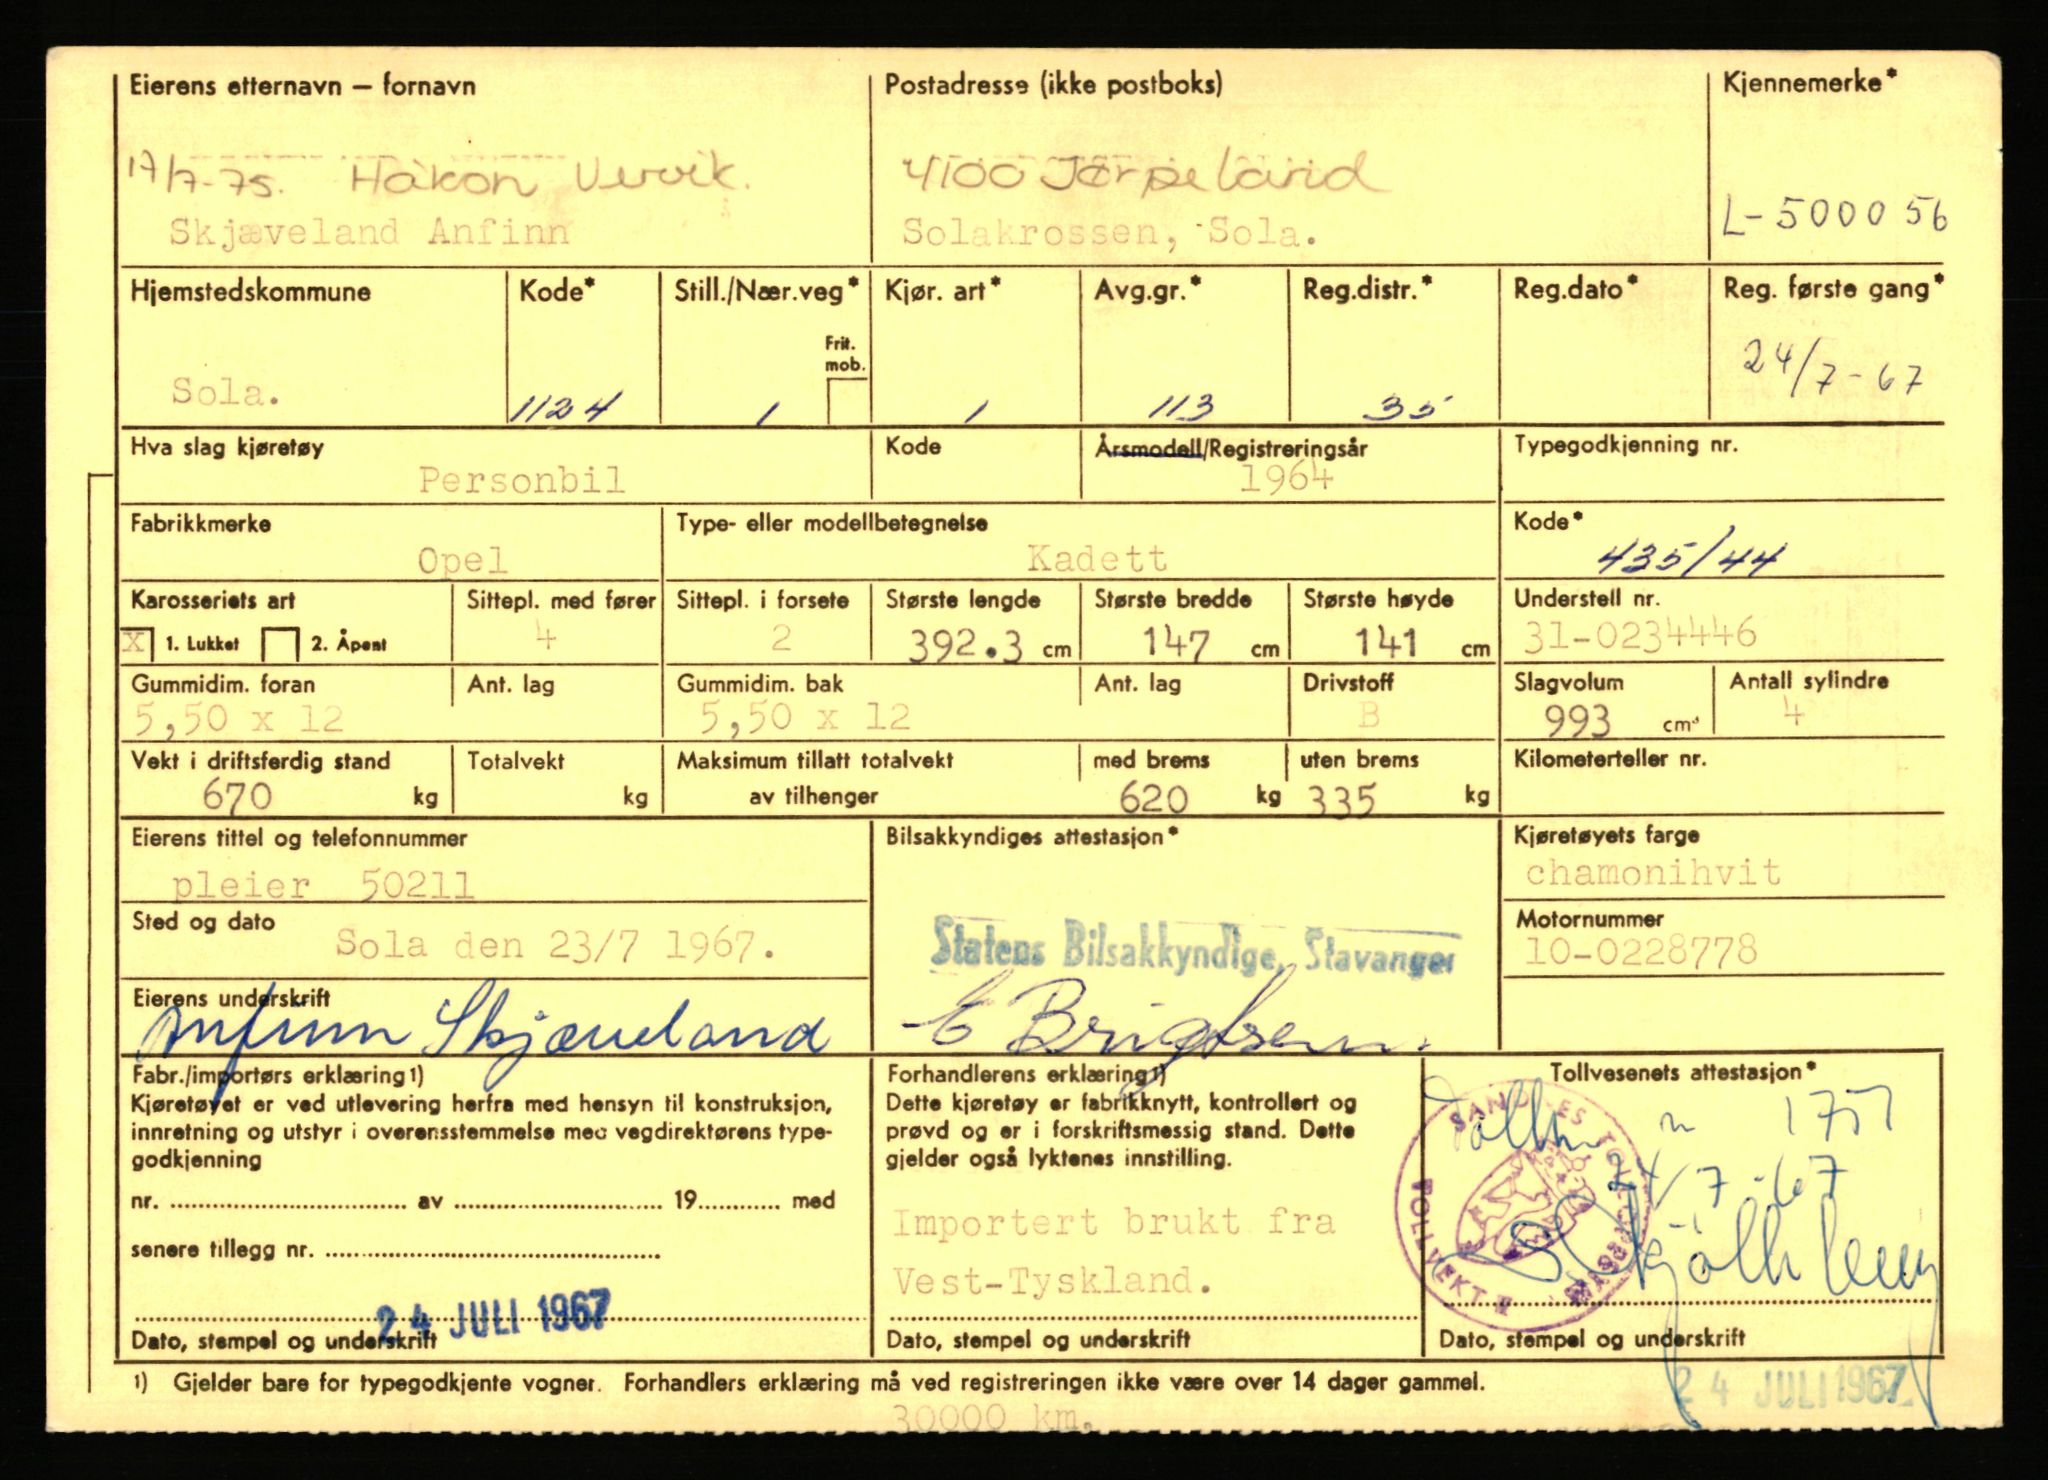 Eierens etternavn – fornavn Postadresse (ikke postboks) Kjennemerke*
17/7-75. Håkon 4100 Jørpeland
Skjæveland Anfinn Solakrossen, Sola. L-500056
Hjemstedskommune Kode* Still./Nær.veg* Kjør. art* Avg.gr.* Reg.distr.* Reg.dato* Reg. første gang*
Frit.
mob.
24/7-67
Sola. 1124 1 1 113 35
Hva slag kjøretøy Kode Årsmodell/Registreringsår Typegodkjenning nr.
Personbil 1964
Fabrikkmerke Type- eller modellbetegnelse Kode*
Opel Kadett 435/44
Karosseriets art Sittepl. med fører Sittepl. i forsete Største lengde Største bredde Største høyde Understell nr.
X 1. Lukket 2. Åpent 4 2 392.3 cm 147 cm 141 cm 31-0234446
Gummidim. foran Ant. lag Gummidim. bak Ant. lag Drivstoff Slagvolum Antall sylindre
5,50 x 12 5,50 x 12 B 993 cm³ 4
Vekt i driftsferdig stand Totalvekt Maksimum tillatt totalvekt med brems uten brems Kilometerteller nr.
670 kg kg av tilhenger 620 kg 335 kg
Eierens tittel og telefonnummer Bilsakkyndiges attestasjon* Kjøretøyets farge
pleier 50211 chamonihvit
Sted og dato Motornummer
Sola den 23/7 1967. Statens Bilsakkyndige, Stavanger 10-0228778
Eierens underskrift
Anfinn Skjæveland E Brigtsen
Fabr./importørs erklæring1) Forhandlerens erklæring1) Tollvesenets attestasjon*
Kjøretøyet er ved utlevering herfra med hensyn til konstruksjon, Dette kjøretøy er fabrikknytt, kontrollert og
innretning og utstyr i overensstemmelse med vegdirektørens type- prøvd og er i forskriftsmessig stand. Dette
godkjenning gjelder også lyktenes innstilling.
24/7-67
nr. av 19 med
Importert brukt fra
senere tillegg nr.
Vest-Tyskland.
24 JULI 1967
Dato, stempel og underskrift Dato, stempel og underskrift Dato, stempel og underskrift
1) Gjelder bare for typegodkjente vogner. Forhandlers erklæring må ved registreringen ikke være over 14 dager gammel.
24 JULI 1967
30000 km.